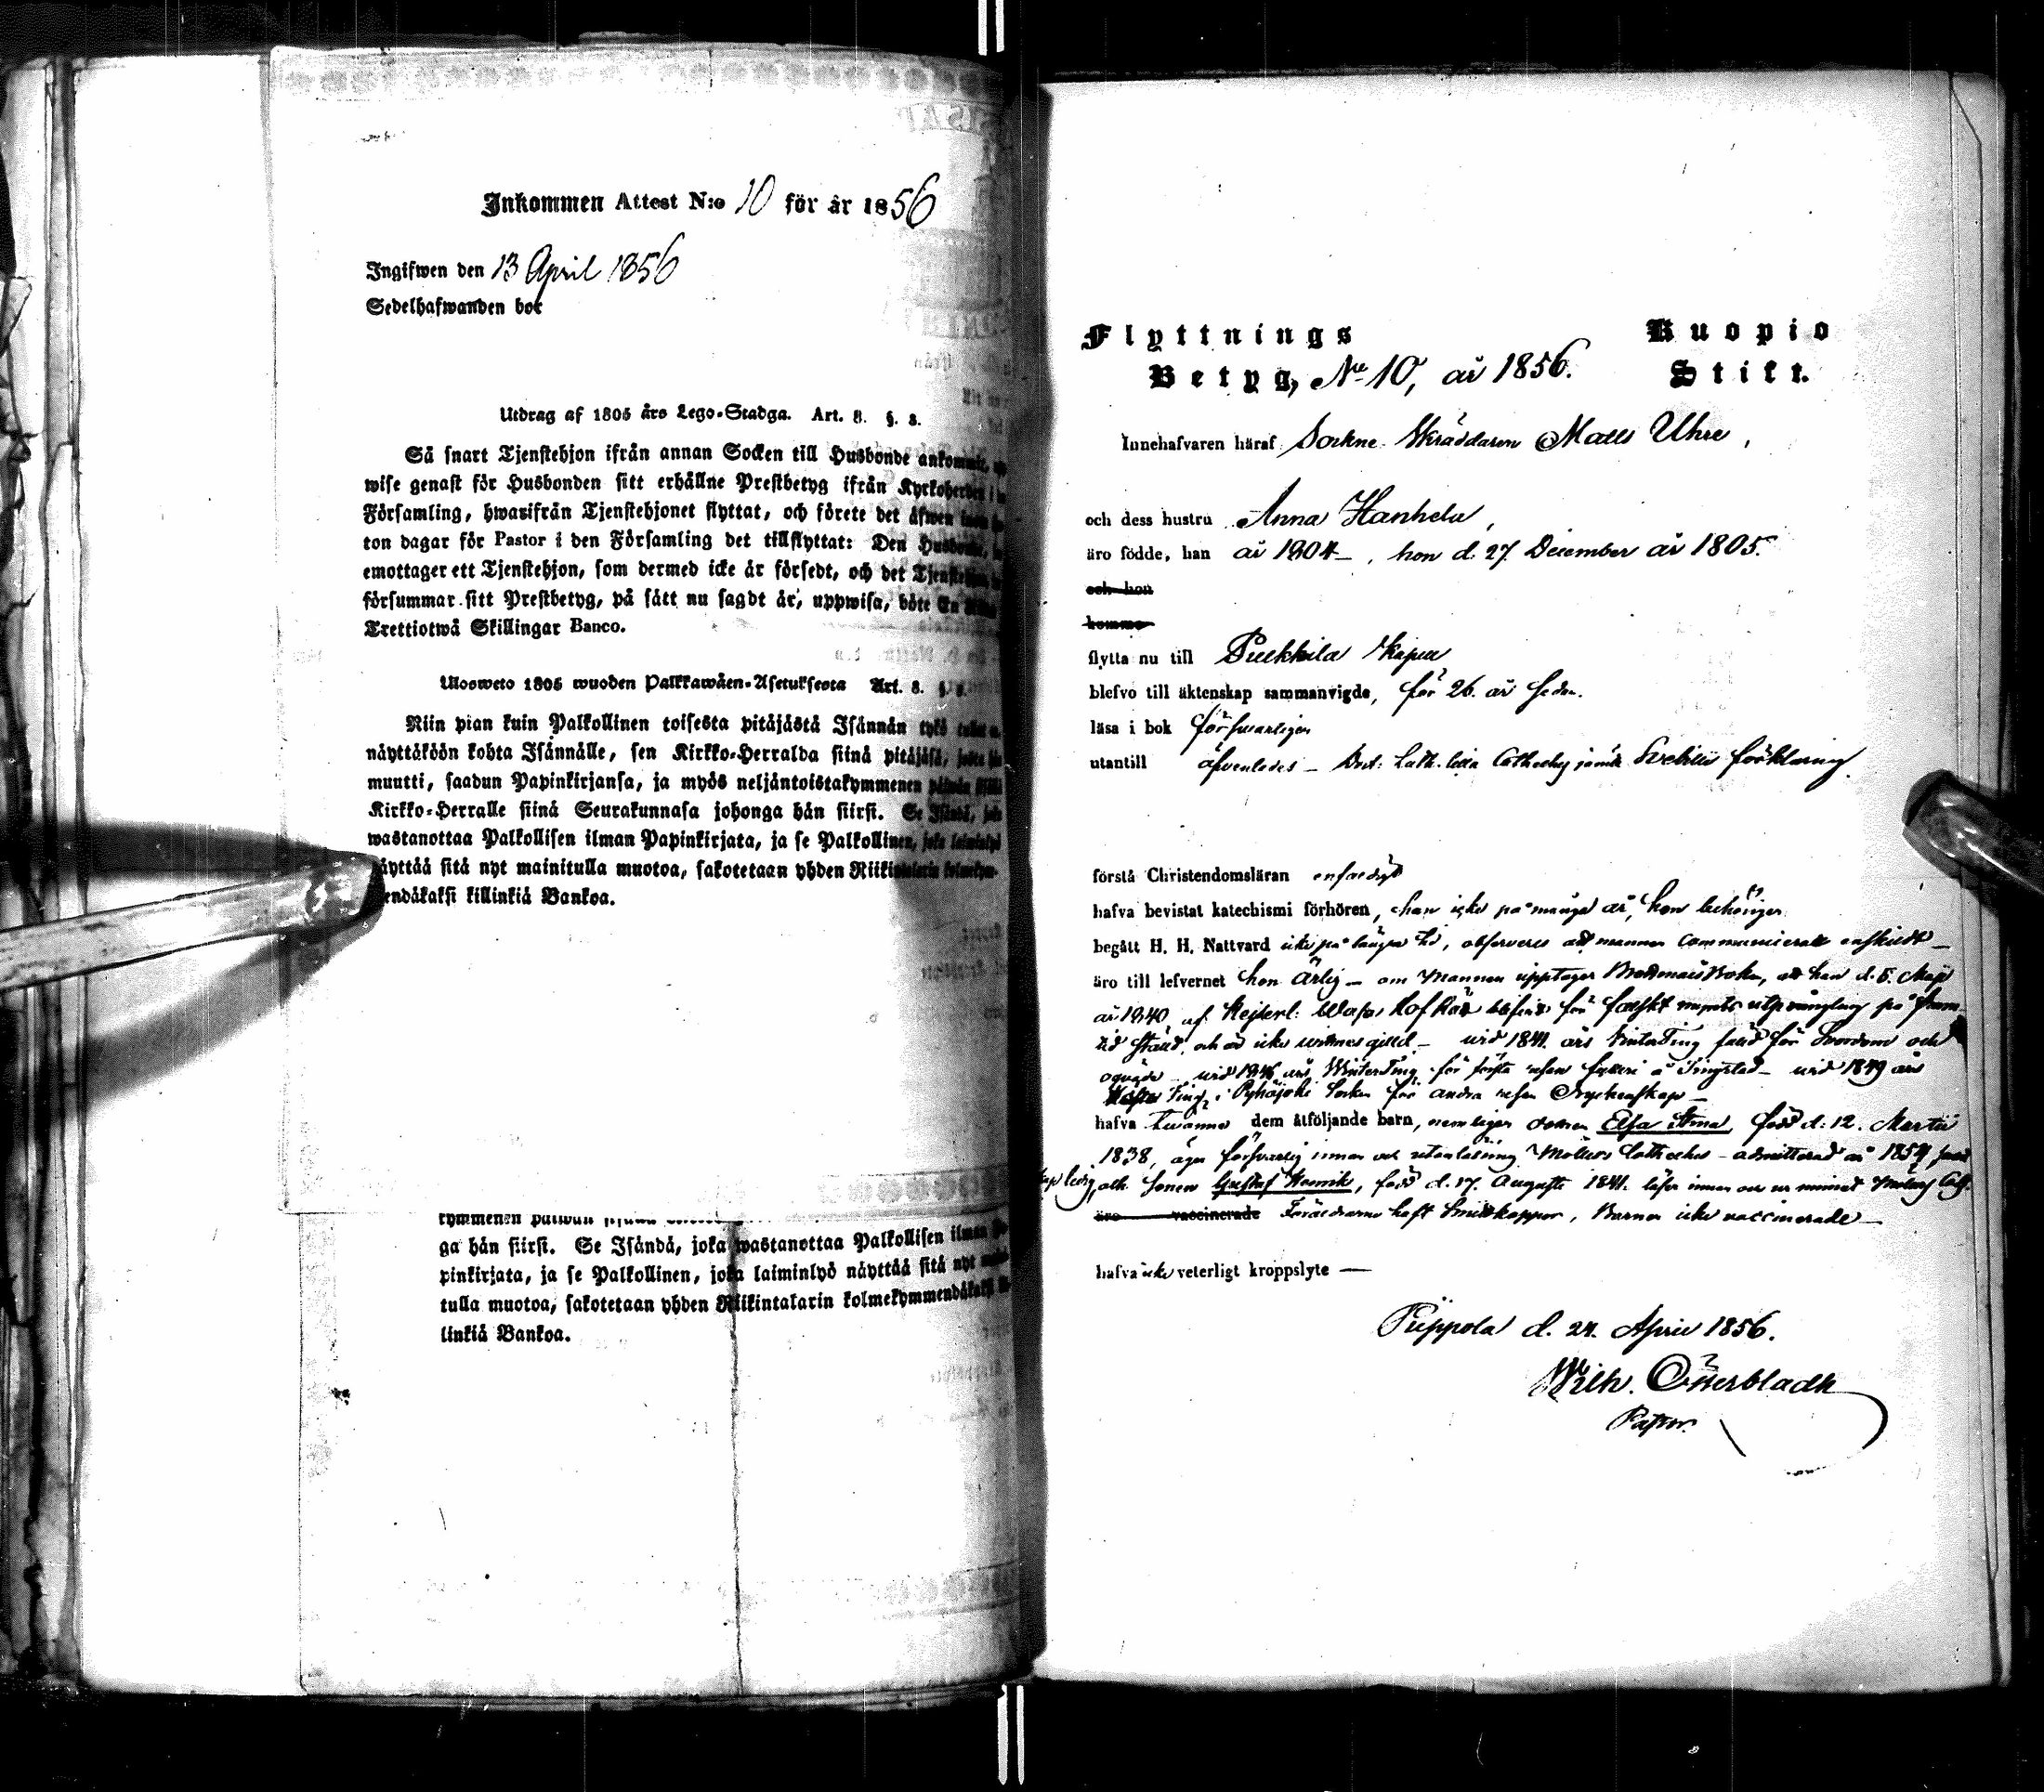 Inkommen Attest N:o 10 för år 1856
Ingifwen den 13 April 1856
Sedelhafwanden bor
Utdrag af 1805 års Lego-Stadga. Art. 8. §. 8.
Så snart Tjenstehjon ifrån annan Socken till Husbonde ankommit,
wise genast för Husbonden sitt erhållne Prestbetyg ifrån Kyrkoherden i
Församling, hwarifrån Tjenstehjonet flyttat, och förete det äfwen inom
ton dagar för Pastor i den Församling det tillflyttat: Den Husbonde,
emottager ett Tjenstehjon, som dermed icke är försedt, och det Tjenstehjon
försummar sitt Prestbetyg, på sätt nu sagdt är, uppwisa, böte En
Trettiotwå Skillingar Banco.
Ulosweto 1805 wuoden Palkkawäen-Asetuksesta Art. 8. §.
Niin pian kuin Palkollinen toisesta pitäjästä Isännän tykö
näyttäköön kohta Isännälle, sen Kirkko-Herralda siinä pitäjäsä,
muutti, saadun Papinkirjansa, ja myös neljäntoistakymmenen
Kirkko-Herralle siinä Seurakunnasa johonga hän siirsi. Se Isändä, joka
wastanottaa Palkollisen ilman Papinkirjata, ja se Palkollinen, joka laiminlyö
äyttää sitä nyt mainitulla muotoa, sakotetaan yhden Riikintalarin kolmekym-
endäkaksi killinkiä Bankoa.
kymmenen
ga hän siirsi. Se Isändä, joka wastanottaa Palkollisen ilman
pinkirjata, ja se Palkollinen, joka laiminlyö näyttää sitä nyt
tulla muotoa, sakotetaan yhden Riikintalarin kolmekymmendäkaksi
linkiä Bankoa.
Flyttnings Kuopio
Betyg, No 10, år 1856. Stift.
Innehafvaren häraf Sockne Skräddaren Matts Uhre,
och dess hustru Anna Hanhela,
äro födde, han år 1804, hon d. 27 December år 1805.
och hon
komma
flytta nu till Pulkkila Kapell
blefvo till äktenskap sammanvigde, för 26. år sedan.
läsa i bok försvarligen
utantill äfvenledes - Luth. lilla Catheches jämte Svebilii förklaring.
förstå Christendomsläran enfaldigt
hafva bevistat katechismi förhören, han icke på många år, hon behörigen
begått H. H. Nattvard icke på längre tid, observeras att mannen communicerat enskildt
äro till lefvernet hon ärlig - om mannen upptager Boken, att han d. 5. Maji
år 1840 af Kejserl. Wasa HofRätt för falskt mynts utprångling på
tid ställd, och är icke wittnesgill - wid 1841 års WinterTing fälld för Svordom och
wid 1846 års WinterTing för första resan fylleri å Tingstad - wid 1849 års
Ting i Pyhäjoki Socken för andra resan Dryckenskap
hafva tvänne dem åtföljande barn, nemligen dottren Elsa Anna, född d. 12. Martii
1838, äger försvarlig innan och utanläsning Catheches - admitterad år 1854,
ledig, och sonen Gustaf Henrik, född d. 17. Augusti 1841. läser innan och ur minnet
äro vaccinerade Föräldrarne haft Smittkoppor, Barnen icke vaccinerade
hafva icke veterligt kroppslyte
Pippola d. 24. April 1856.
Wilh. Österbladh
Pastor.